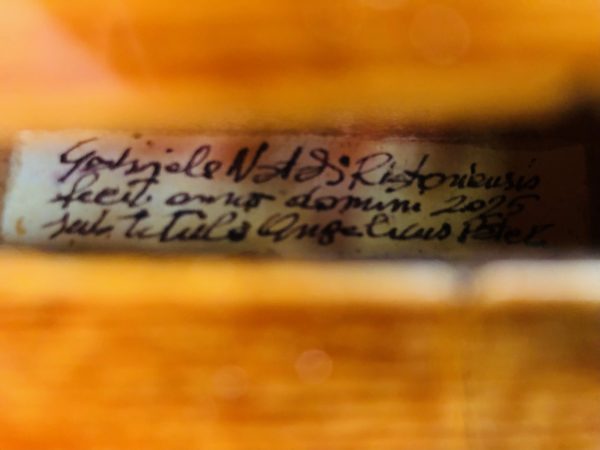 Gabriele Natali Ristoniensis
fecit anno domini 2025
sub titulo Angelicus Puer